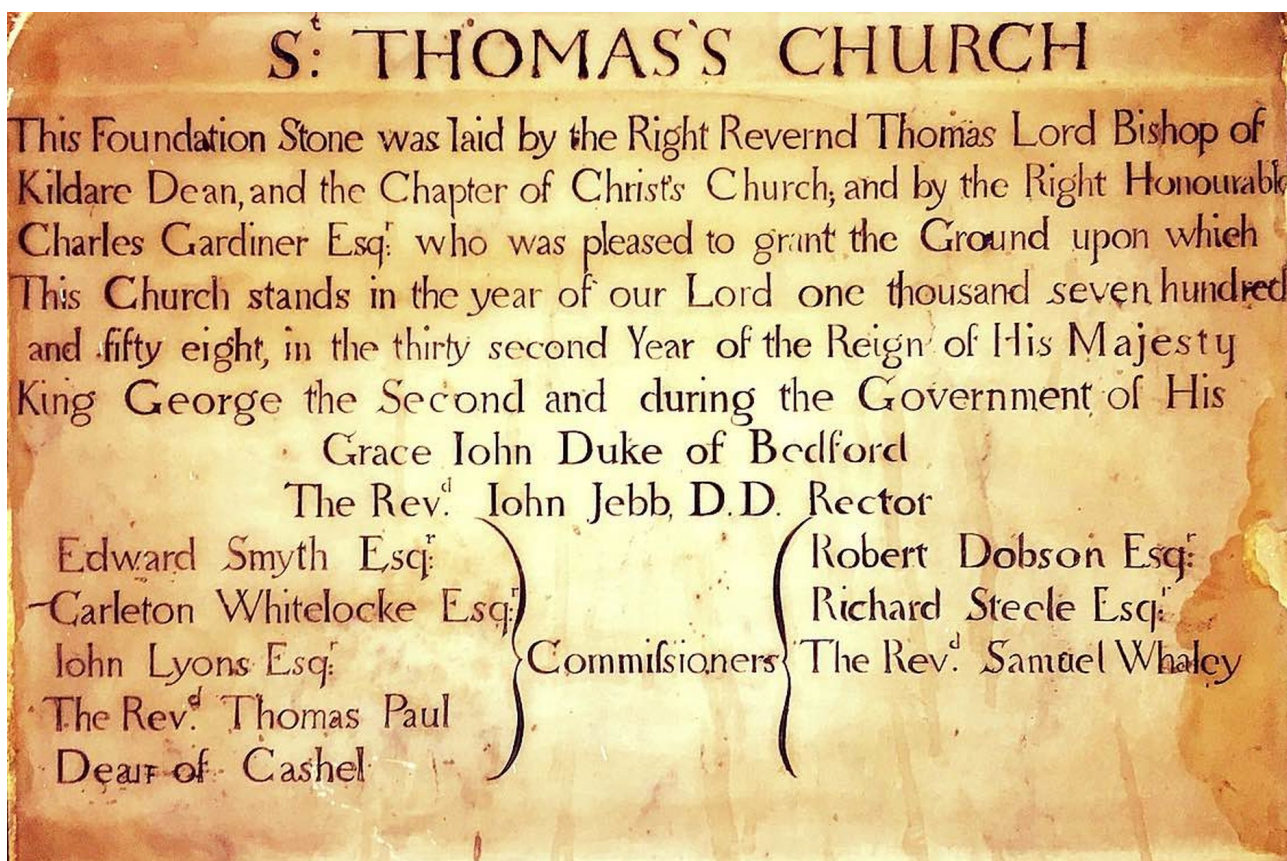 S:ᵗ THOMAS'S CHURCH
This Foundation Stone was laid by the Right Revernd Thomas Lord Bishop of
Kildare Dean, and the Chapter of Christ's Church; and by the Right Honourable
Charles Gardiner Esq:ʳ who was pleased to grant the Ground upon which
This Church stands in the year of our Lord one thousand seven hundred
and fifty eight, in the thirty second Year of the Reign of His Majesty
King George the Second and during the Government of His
Grace Iohn Duke of Bedford
The Rev:ᵈ Iohn Jebb, D.D. Rector
Edward Smyth Esq:ʳ
Carleton Whitelocke Esq:ʳ
Iohn Lyons Esq:ʳ
The Rev:ᵈ Thomas Paul
Dean of Cashel
Commiſsioners
Robert Dobson Esq:ʳ
Richard Steele Esq:ʳ
The Rev:ᵈ Samuel Whaley